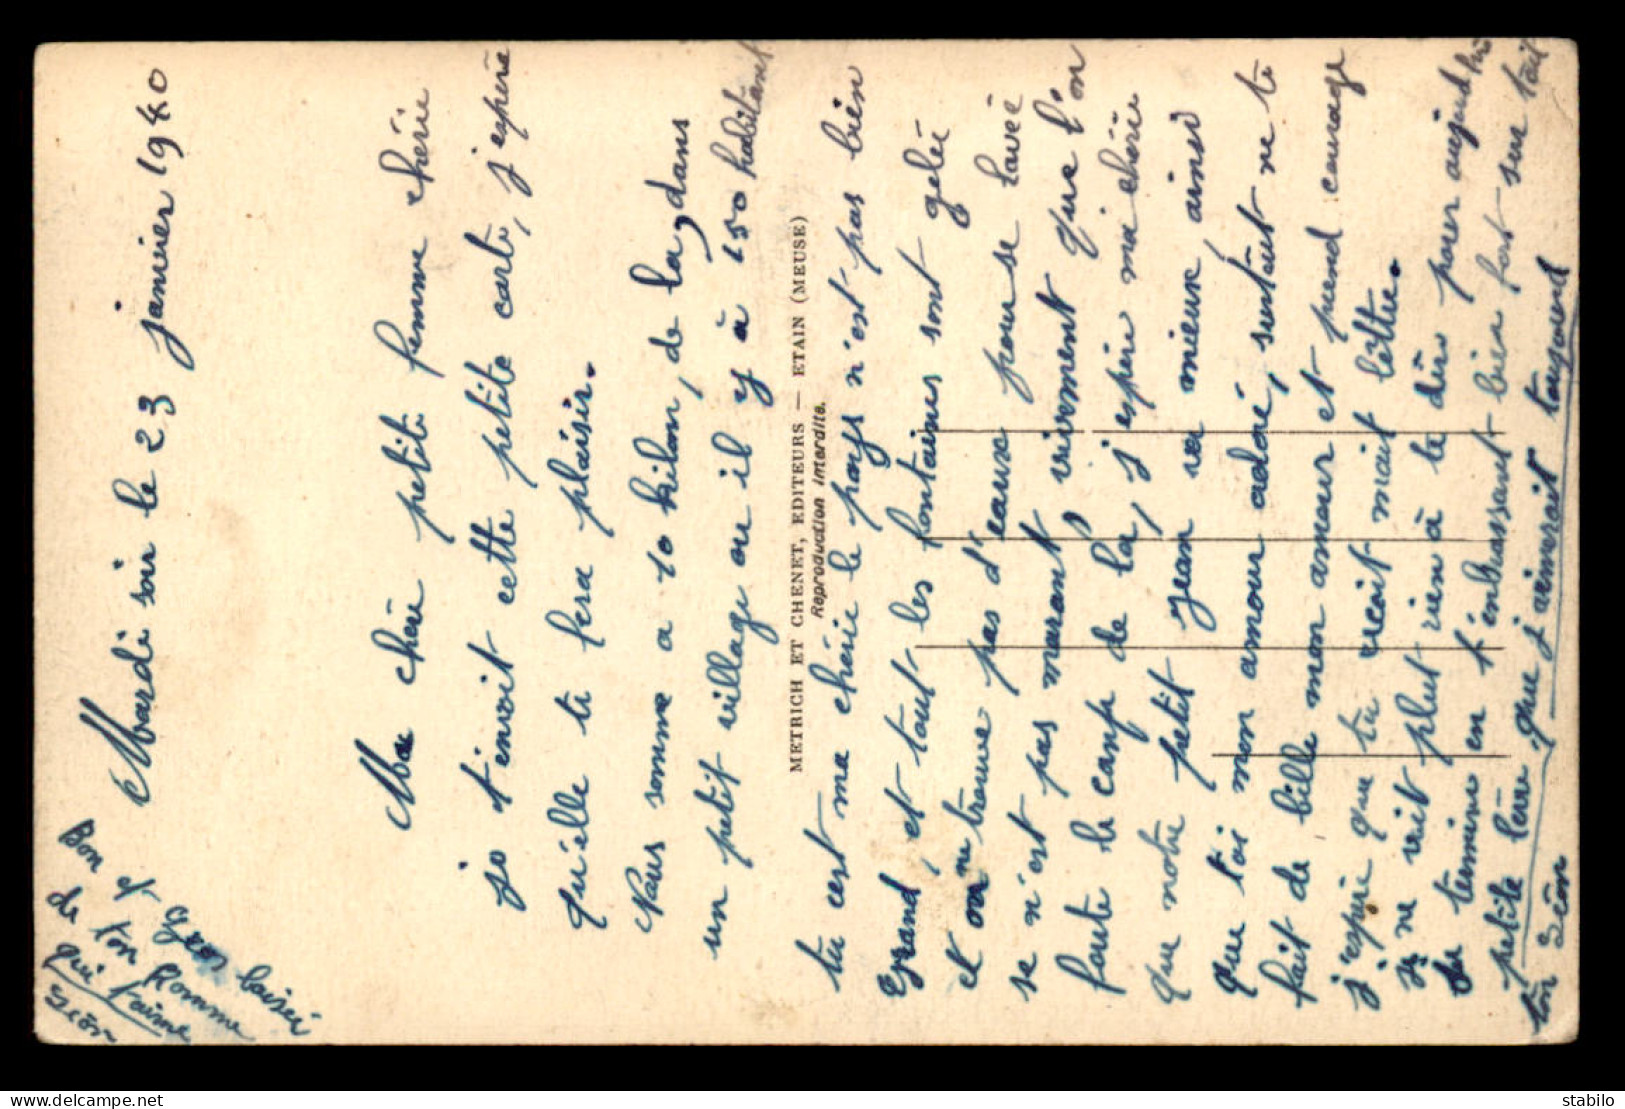 Mardi soir le 23 janvier 1940
Ma chèri petite femme chérie
je t'envoit cette petite carte, j'espère
qu'elle te fera plaisir.
Nous somme a 10 kilom, de la, dans
un petit village ou il y à 150 habitant
METRICH ET CHENET, EDITEURS — ETAIN (MEUSE)
Reproduction interdite.
tu est ma chérie le pays n'est pas bien
Grand, et tout les fontaines sont gelée
et on ne trouve pas d'eaux pour se lavée
se n'est pas marant, vivement que l'on
foute le camp de la, j'espère ma chérie
que notre petit Jean va mieux, ainsi
que toi mon amour adoré, surtout ne te
fait de bille mon amour et prend courage
j'espère que tu recoit mait lettre.
je ne voit plut rien à te dire pour aujoud'hui
je termine en t'enbrassant bien fort sur tait
petite lèvre que j'aimerait toujourt
ton Léon
Bon et Gros baisée
de ton Homme
qui t'aime
Léon
stabilo